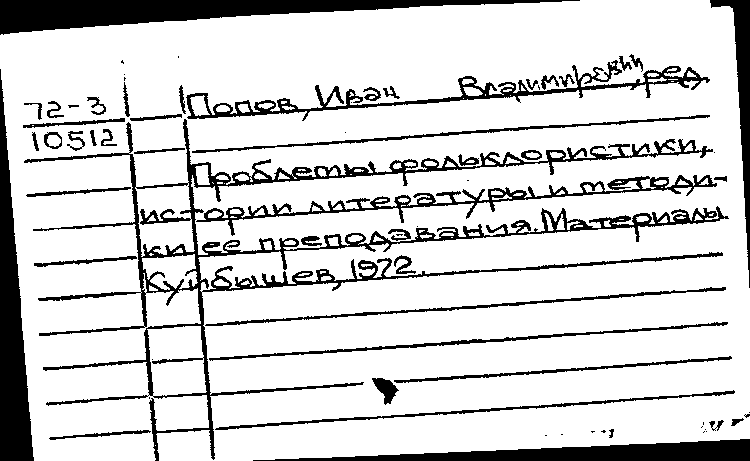 72-3 Попов, Иван Владимирович, ред.
10512
Проблемы фольклористики,
истории литературы и методи-
ки ее преподавания. Материалы.
Куйбышев, 1972.